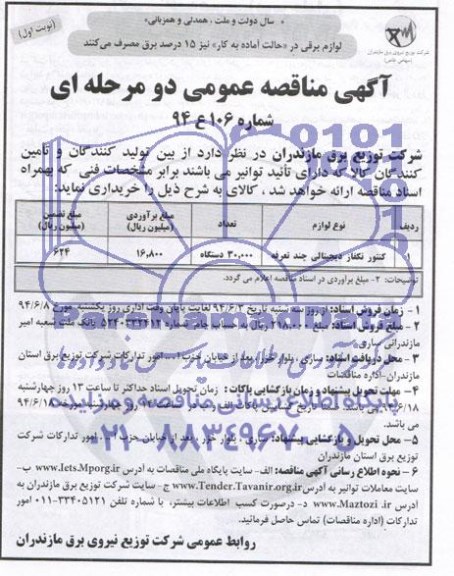 سال دولت و ملت ، همدلی و همزبانی
(نوبت اول)
لوازم برقی در «حالت آماده به کار» نیز ۱۵ درصد برق مصرف می‌کنند
شرکت توزیع نیروی برق مازندران
(سهامی خاص)
آگهی مناقصه عمومی دو مرحله ای
شماره ۱۰۶ ع ۹۴
شرکت توزیع برق مازندران در نظر دارد از بین تولید کنندگان و تامین
کنندگان کالا که دارای تأئید توانیر می باشند برابر مشخصات فنی که بهمراه
اسناد مناقصه ارائه خواهد شد ، کالای به شرح ذیل را خریداری نماید:
ردیف نوع لوازم تعداد مبلغ برآوردی (میلیون ریال) مبلغ تضمین (میلیون ریال)
۱ کنتور تکفاز دیجیتالی چند تعرفه ۳۰,۰۰۰ دستگاه ۱۶,۸۰۰ ۶۲۴
توضیحات: ۲- مبلغ برآوردی در اسناد مناقصه اعلام می گردد.
۱- زمان فروش اسناد: از روز سه شنبه تاریخ ۹۴/۶/۳ لغایت پایان وقت اداری روز یکشنبه مورخ ۹۴/۶/۸
۲- مبلغ فروش اسناد: مبلغ ۲۱۸,۰۰۰ ریال به حساب جام شماره بانک ملت شعبه امیر
مازندرانی ساری
۳- محل دریافت اسناد: ساری ، بلوار خزر ، بعد از خیابان حزب ا... امور تدارکات شرکت توزیع برق استان
مازندران-اداره مناقصات
۴- مهلت تحویل پیشنهاد و زمان بازگشایی پاکات : زمان تحویل اسناد حداکثر تا ساعت ۱۳ روز چهارشنبه
می باشد.
۵- محل تحویل و بازگشایی پیشنهاد: ساری ، بلوار خزر ، بعد از خیابان حزب ا... امور تدارکات شرکت
توزیع برق استان مازندران
۶- نحوه اطلاع رسانی آگهی مناقصه: الف- سایت پایگاه ملی مناقصات به آدرس www.Iets.Mporg.ir ب-
سایت معاملات توانیر به آدرس www.Tender.Tavanir.org.ir ج- سایت شرکت توزیع برق مازندران به
آدرس www.Maztozi.ir د- درصورت کسب اطلاعات بیشتر، با شماره تلفن ۳۳۴۰۵۱۲۱-۰۱۱ امور
تدارکات (اداره مناقصات) تماس حاصل فرمائید.
روابط عمومی شرکت توزیع نیروی برق مازندران
پایگاه اطلاع رسانی مناقصه و مزایده
۰۲۱-۸۸۳۴۹۶۷۰-۵